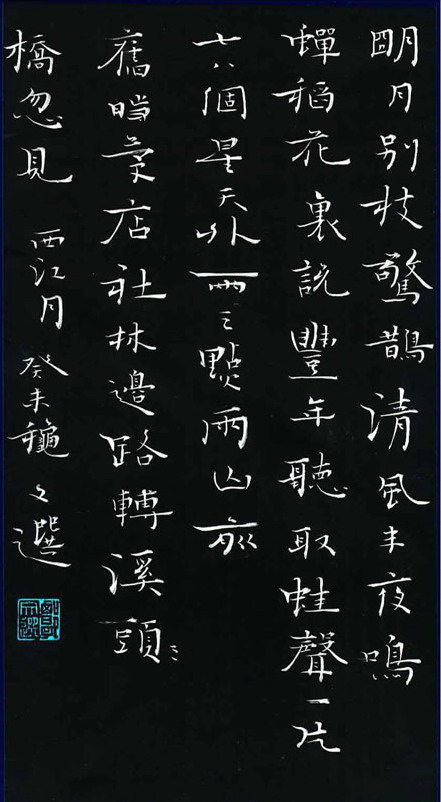 朙月別枝驚鵲清風半夜鳴
蟬稻花裏說豐年聽取蛙聲一片
七八個星天外兩三點雨山前
舊時茅店社林邊路轉溪頭
橋忽見 西江月 癸未穐 文選